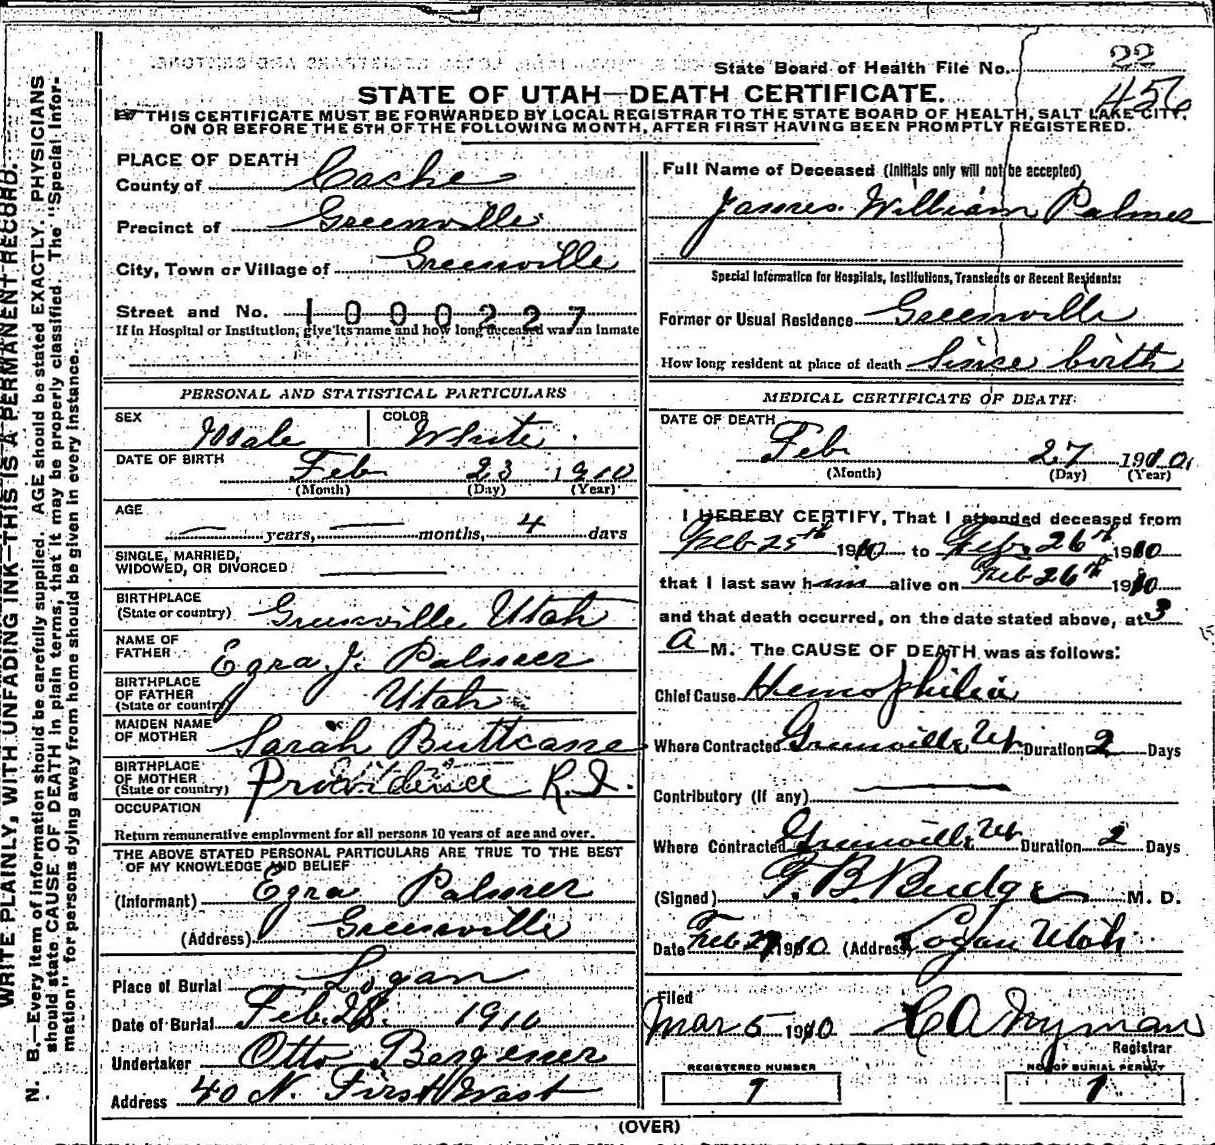 WRITE PLAINLY, WITH UNFADING INK—THIS IS A PERMANENT RECORD.
N. B.—Every item of information should be carefully supplied. AGE should be stated EXACTLY. PHYSICIANS
should state CAUSE OF DEATH in plain terms, that it may be properly classified. The "Special Infor-
mation" for persons dying away from home should be given in every instance.
State Board of Health File No. 22
456
STATE OF UTAH—DEATH CERTIFICATE.
THIS CERTIFICATE MUST BE FORWARDED BY LOCAL REGISTRAR TO THE STATE BOARD OF HEALTH, SALT LAKE CITY,
ON OR BEFORE THE 5TH OF THE FOLLOWING MONTH, AFTER FIRST HAVING BEEN PROMPTLY REGISTERED.
PLACE OF DEATH
County of Cache
Precinct of Greenville
City, Town or Village of Greenville
Street and No. 1000227
If in Hospital or Institution, give its name and how long deceased was an inmate
PERSONAL AND STATISTICAL PARTICULARS
SEX Male COLOR White
DATE OF BIRTH Feb 23 1910
(Month) (Day) (Year)
AGE years, months, 4 days
SINGLE, MARRIED,
WIDOWED, OR DIVORCED
BIRTHPLACE
(State or country) Greenville Utah
NAME OF
FATHER Ezra J. Palmer
BIRTHPLACE
OF FATHER
(State or country) Utah
MAIDEN NAME
OF MOTHER Sarah
BIRTHPLACE
OF MOTHER
(State or country) Providence R.I.
OCCUPATION
Return remunerative employment for all persons 10 years of age and over.
THE ABOVE STATED PERSONAL PARTICULARS ARE TRUE TO THE BEST
OF MY KNOWLEDGE AND BELIEF
(Informant) Ezra Palmer
(Address) Greenville
Place of Burial Logan
Date of Burial Feb. 28. 1910
Undertaker Otto
Address 40 N. First West
Full Name of Deceased (Initials only will not be accepted)
James William Palmer
Special Information for Hospitals, Institutions, Transients or Recent Residents:
Former or Usual Residence Greenville
How long resident at place of death Since birth
MEDICAL CERTIFICATE OF DEATH
DATE OF DEATH
Feb 27 1910
(Month) (Day) (Year)
I HEREBY CERTIFY, That I attended deceased from
Feb 25th 1910 to Feb. 26th 1910
that I last saw him alive on Feb 26th 1910
and that death occurred, on the date stated above, at 3
A M. The CAUSE OF DEATH was as follows:
Chief Cause Hemophilia
Where Contracted Greenville Ut Duration 2 Days
Contributory (If any)
Where Contracted Greenville Ut Duration 2 Days
(Signed) Budge M. D.
Date Feb 27 1910 (Address) Logan Utah
Filed
Mar 5 1910 C A Nyman
Registrar
REGISTERED NUMBER NO. OF BURIAL PERMIT
1
(OVER)